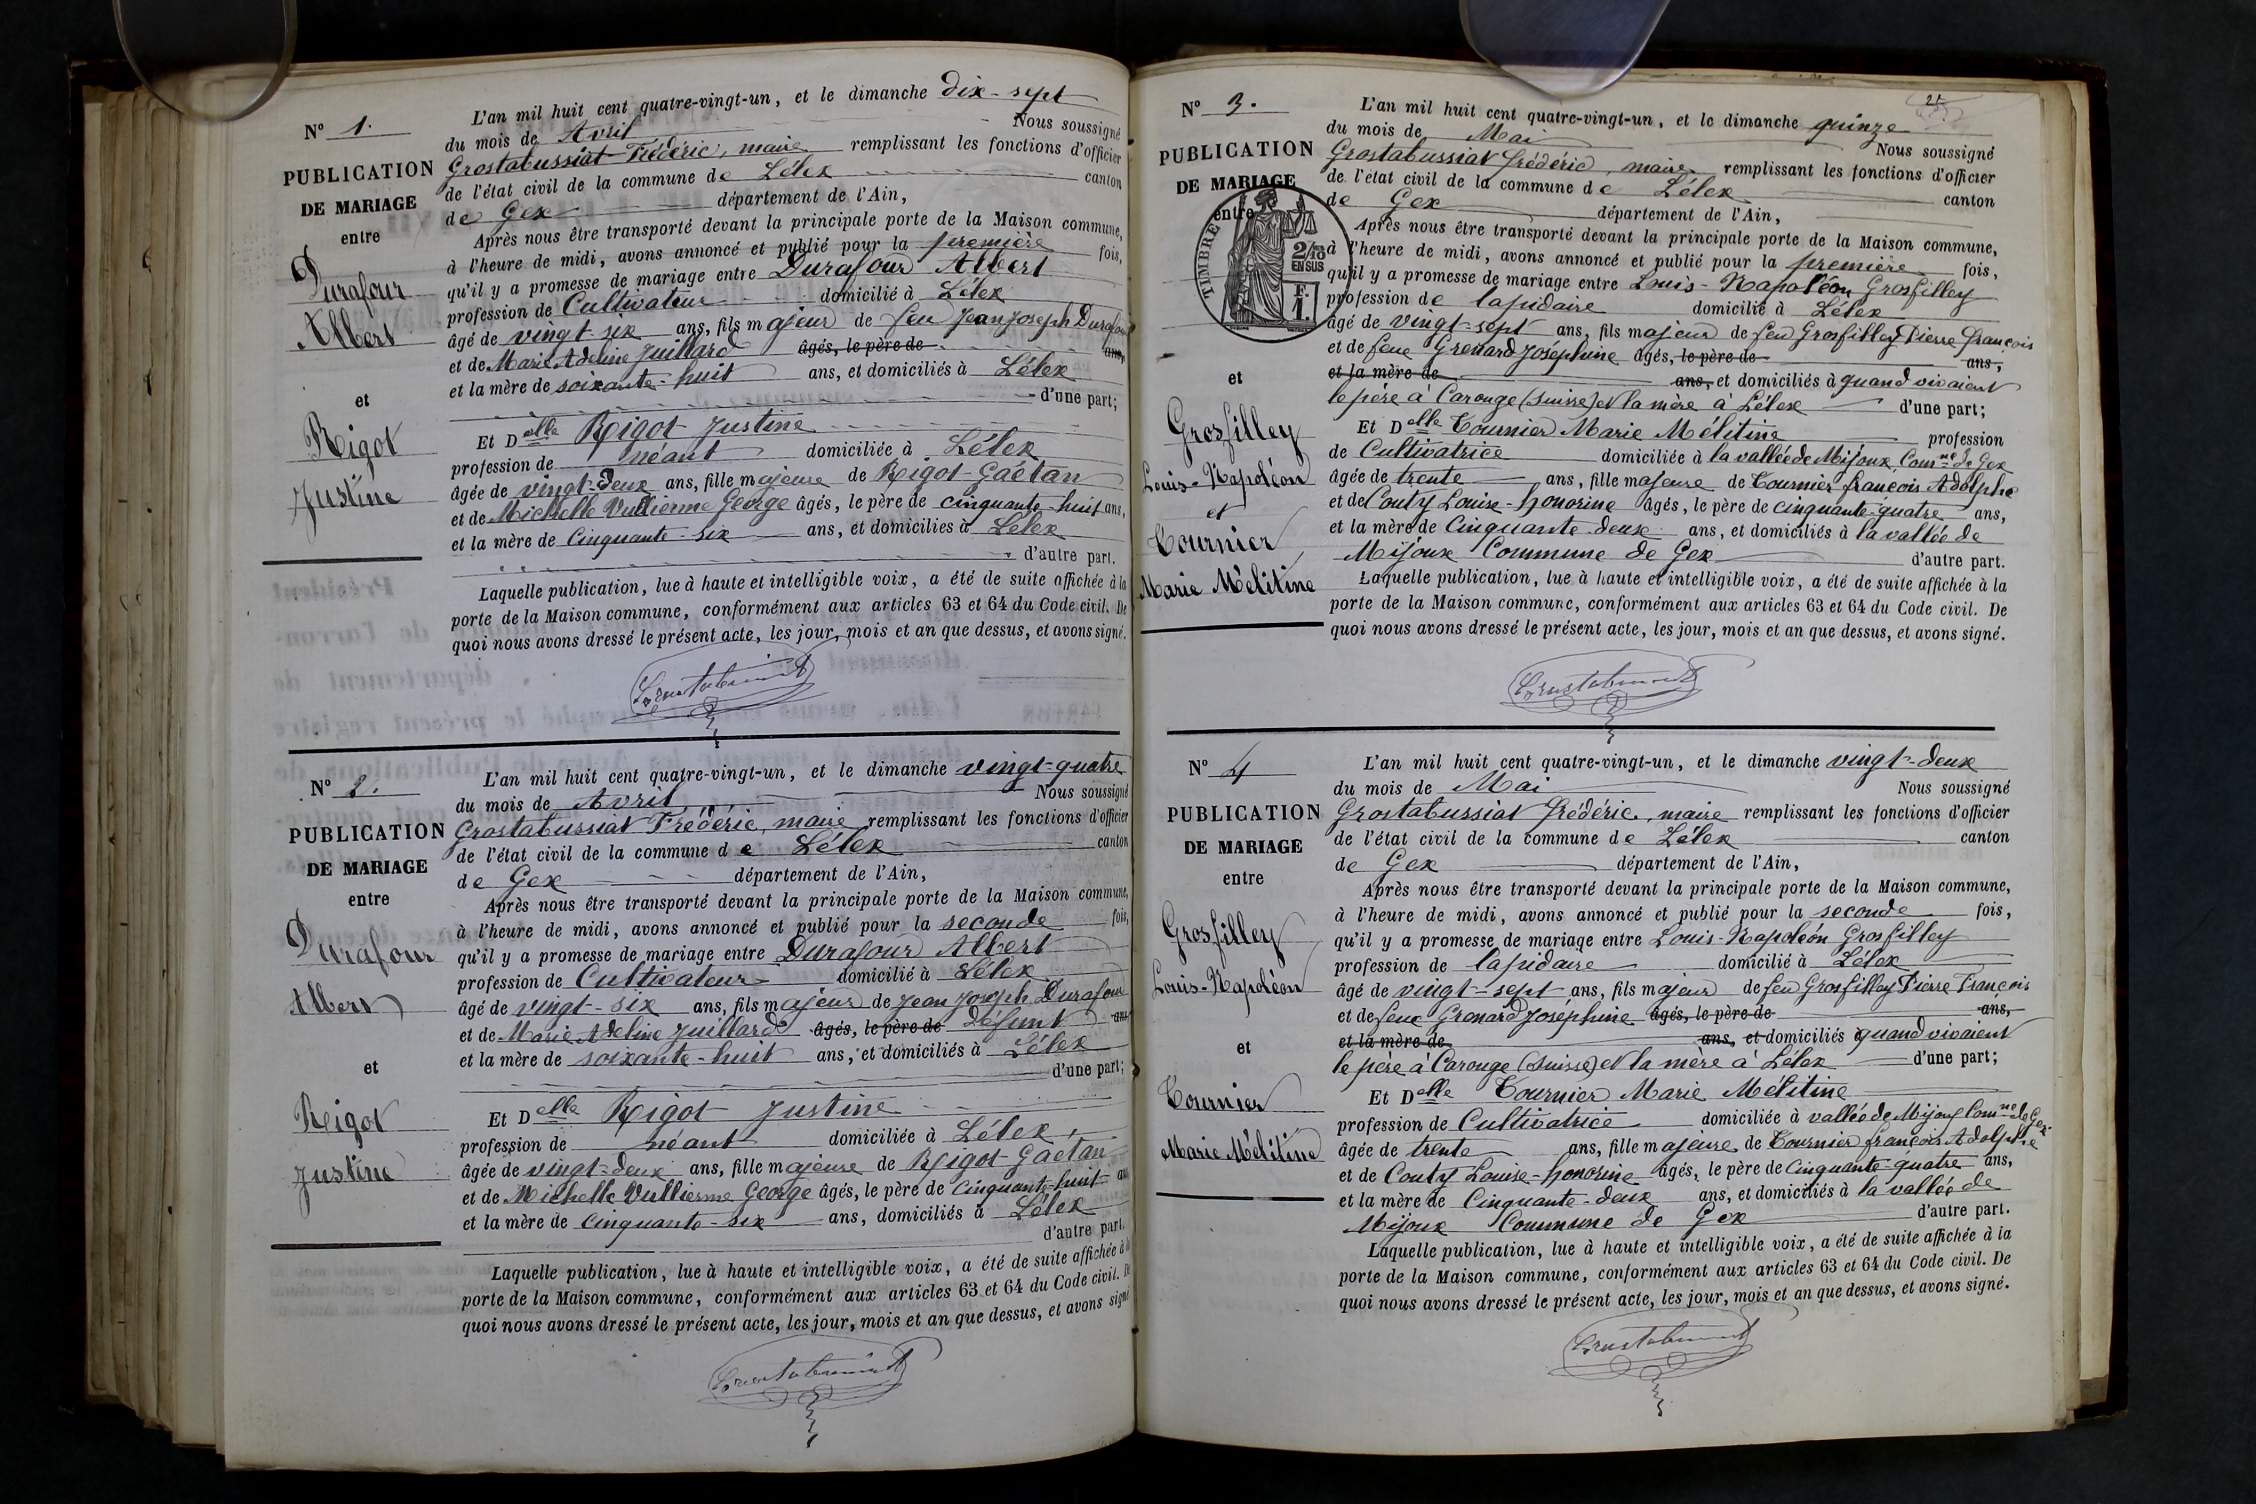 N° 1.
PUBLICATION
DE MARIAGE
entre
Durafour
Albert
et
Rigot
Justine
L'an mil huit cent quatre-vingt-un, et le dimanche dix-sept
du mois de Avril Nous soussigné
Grostabussiat Frédéric, maire remplissant les fonctions d'officier
de l'état civil de la commune de Lélex canton
de Gex département de l'Ain,
Après nous être transporté devant la principale porte de la Maison commune,
à l'heure de midi, avons annoncé et publié pour la première fois,
qu'il y a promesse de mariage entre Durafour Albert
profession de Cultivateur domicilié à Lélex
âgé de vingt-six ans, fils majeur de feu Jean Joseph Durafour
et de Marie Adeline Juillard âgés, le père de ans,
et la mère de soixante-huit ans, et domiciliés à Lélex
d'une part;
Et Delle Rigot Justine
profession de néant domiciliée à Lélex
âgée de vingt-deux ans, fille majeure de Rigot Gaétan
et de Michelle Vullierme George âgés, le père de cinquante-huit ans,
et la mère de Cinquante-six ans, et domiciliés à Lélex
d'autre part.
Laquelle publication, lue à haute et intelligible voix, a été de suite affichée à la
porte de la Maison commune, conformément aux articles 63 et 64 du Code civil. De
quoi nous avons dressé le présent acte, les jour, mois et an que dessus, et avons signé.
Grostabussiat
N° 2.
PUBLICATION
DE MARIAGE
entre
Durafour
Albert
et
Rigot
Justine
L'an mil huit cent quatre-vingt-un, et le dimanche vingt-quatre
du mois de Avril Nous soussigné
Grostabussiat Frédéric, maire remplissant les fonctions d'officier
de l'état civil de la commune de Lélex canton
de Gex département de l'Ain,
Après nous être transporté devant la principale porte de la Maison commune,
à l'heure de midi, avons annoncé et publié pour la seconde fois,
qu'il y a promesse de mariage entre Durafour Albert
profession de Cultivateur domicilié à Lélex
âgé de vingt-six ans, fils majeur de Jean Joseph Durafour
et de Marie Adeline Juillard âgés, le père de Défunt ans,
et la mère de soixante-huit ans, et domiciliés à Lélex
d'une part;
Et Delle Rigot Justine
profession de néant domiciliée à Lélex,
âgée de vingt-deux ans, fille majeure de Rigot Gaétan
et de Michelle Vullierme George âgés, le père de Cinquante-huit ans
et la mère de cinquante-six ans, domiciliés à Lélex
d'autre part.
Laquelle publication, lue à haute et intelligible voix, a été de suite affichée à la
porte de la Maison commune, conformément aux articles 63 et 64 du Code civil. De
quoi nous avons dressé le présent acte, les jour, mois et an que dessus, et avons signé
Grostabussiat
N° 3.
PUBLICATION
DE MARIAGE
entre
TIMBRE
2/10
EN SUS
F.
1.
et
Grosfilley
Louis-Napoléon
et
Tournier
Marie Mélitine
L'an mil huit cent quatre-vingt-un, et le dimanche quinze
du mois de Mai Nous soussigné
Grostabussiat frédéric, maire remplissant les fonctions d'officier
de l'état civil de la commune de Lélex canton
de Gex département de l'Ain,
Après nous être transporté devant la principale porte de la Maison commune,
à l'heure de midi, avons annoncé et publié pour la première fois,
qu'il y a promesse de mariage entre Louis-Napoléon Grosfilley
profession de lapidaire domicilié à Lélex
âgé de vingt-sept ans, fils majeur de feu Grosfilley Pierre françois
et de feue Grenard Joséphine âgés, le père de ans,
et la mère de ans, et domiciliés à quand vivaient
le père à Carouge (Suisse) et la mère à Lélex d'une part;
Et Delle Tournier Marie Mélitine profession
de Cultivatrice domiciliée à la vallée de Mijoux, Comne de Gex
âgée de trente ans, fille majeure de Tournier françois Adolphe
et de Couty Louise-honorine âgés, le père de cinquante-quatre ans,
et la mère de Cinquante-deux ans, et domiciliés à la vallée de
Mijoux Commune de Gex d'autre part.
Laquelle publication, lue à haute et intelligible voix, a été de suite affichée à la
porte de la Maison commune, conformément aux articles 63 et 64 du Code civil. De
quoi nous avons dressé le présent acte, les jour, mois et an que dessus, et avons signé.
Grostabussiat
N° 4
PUBLICATION
DE MARIAGE
entre
Grosfilley
Louis-Napoléon
et
Tournier
Marie Mélitine
L'an mil huit cent quatre-vingt-un, et le dimanche vingt-deux
du mois de Mai Nous soussigné
Grostabussiat frédéric, maire remplissant les fonctions d'officier
de l'état civil de la commune de Lélex canton
de Gex département de l'Ain,
Après nous être transporté devant la principale porte de la Maison commune,
à l'heure de midi, avons annoncé et publié pour la seconde fois,
qu'il y a promesse de mariage entre Louis-Napoléon Grosfilley
profession de lapidaire domicilié à Lélex
âgé de vingt-sept ans, fils majeur de feu Grosfilley Pierre François
et de feue Grenard Joséphine âgés, le père de ans,
et la mère de ans, et domiciliés quand vivaient
le père à Carouge (Suisse) et la mère à Lélex d'une part;
Et Delle Tournier Marie Mélitine
profession de Cultivatrice domiciliée à vallée de Mijoux Comne de Gex
âgée de trente ans, fille majeure de Tournier françois Adolphe
et de Couty Louise-honorine âgés, le père de Cinquante-quatre ans,
et la mère de Cinquante-deux ans, et domiciliés à la vallée de
Mijoux Commune de Gex d'autre part.
Laquelle publication, lue à haute et intelligible voix, a été de suite affichée à la
porte de la Maison commune, conformément aux articles 63 et 64 du Code civil. De
quoi nous avons dressé le présent acte, les jour, mois et an que dessus, et avons signé.
Grostabussiat